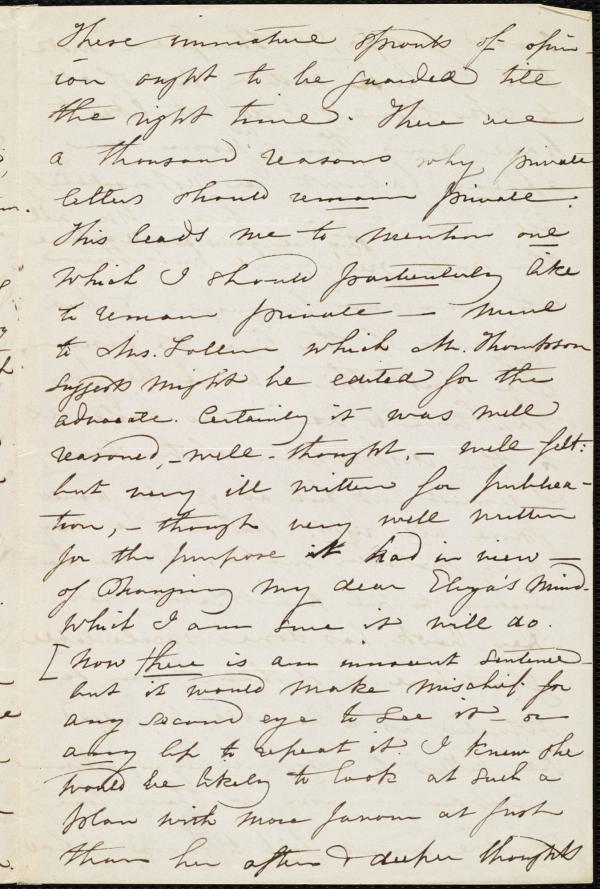 These immature sprouts of opin-
ion ought to be guarded till
the right time. There are
a thousand reasons why private
letters should remain private.
This leads me to mention one
which I should particularly like
to remain private — mine
to Mrs. Follen which Mr. Thompson
suggests might be edited for the
advocate. Certainly it was well
reasoned, - well - thought, - well felt:
but very ill written for publica-
tion, - though very well written
for the purpose it had in view —
of changing my dear Eliza's mind -
which I am sure it will do.
[Now there is an innocent sentence -
but it would make mischief for
any second eye to see it - or
any lip to repeat it. I knew she
would be likely to look at such a
plan with more favour at first
than her after & deeper thoughts